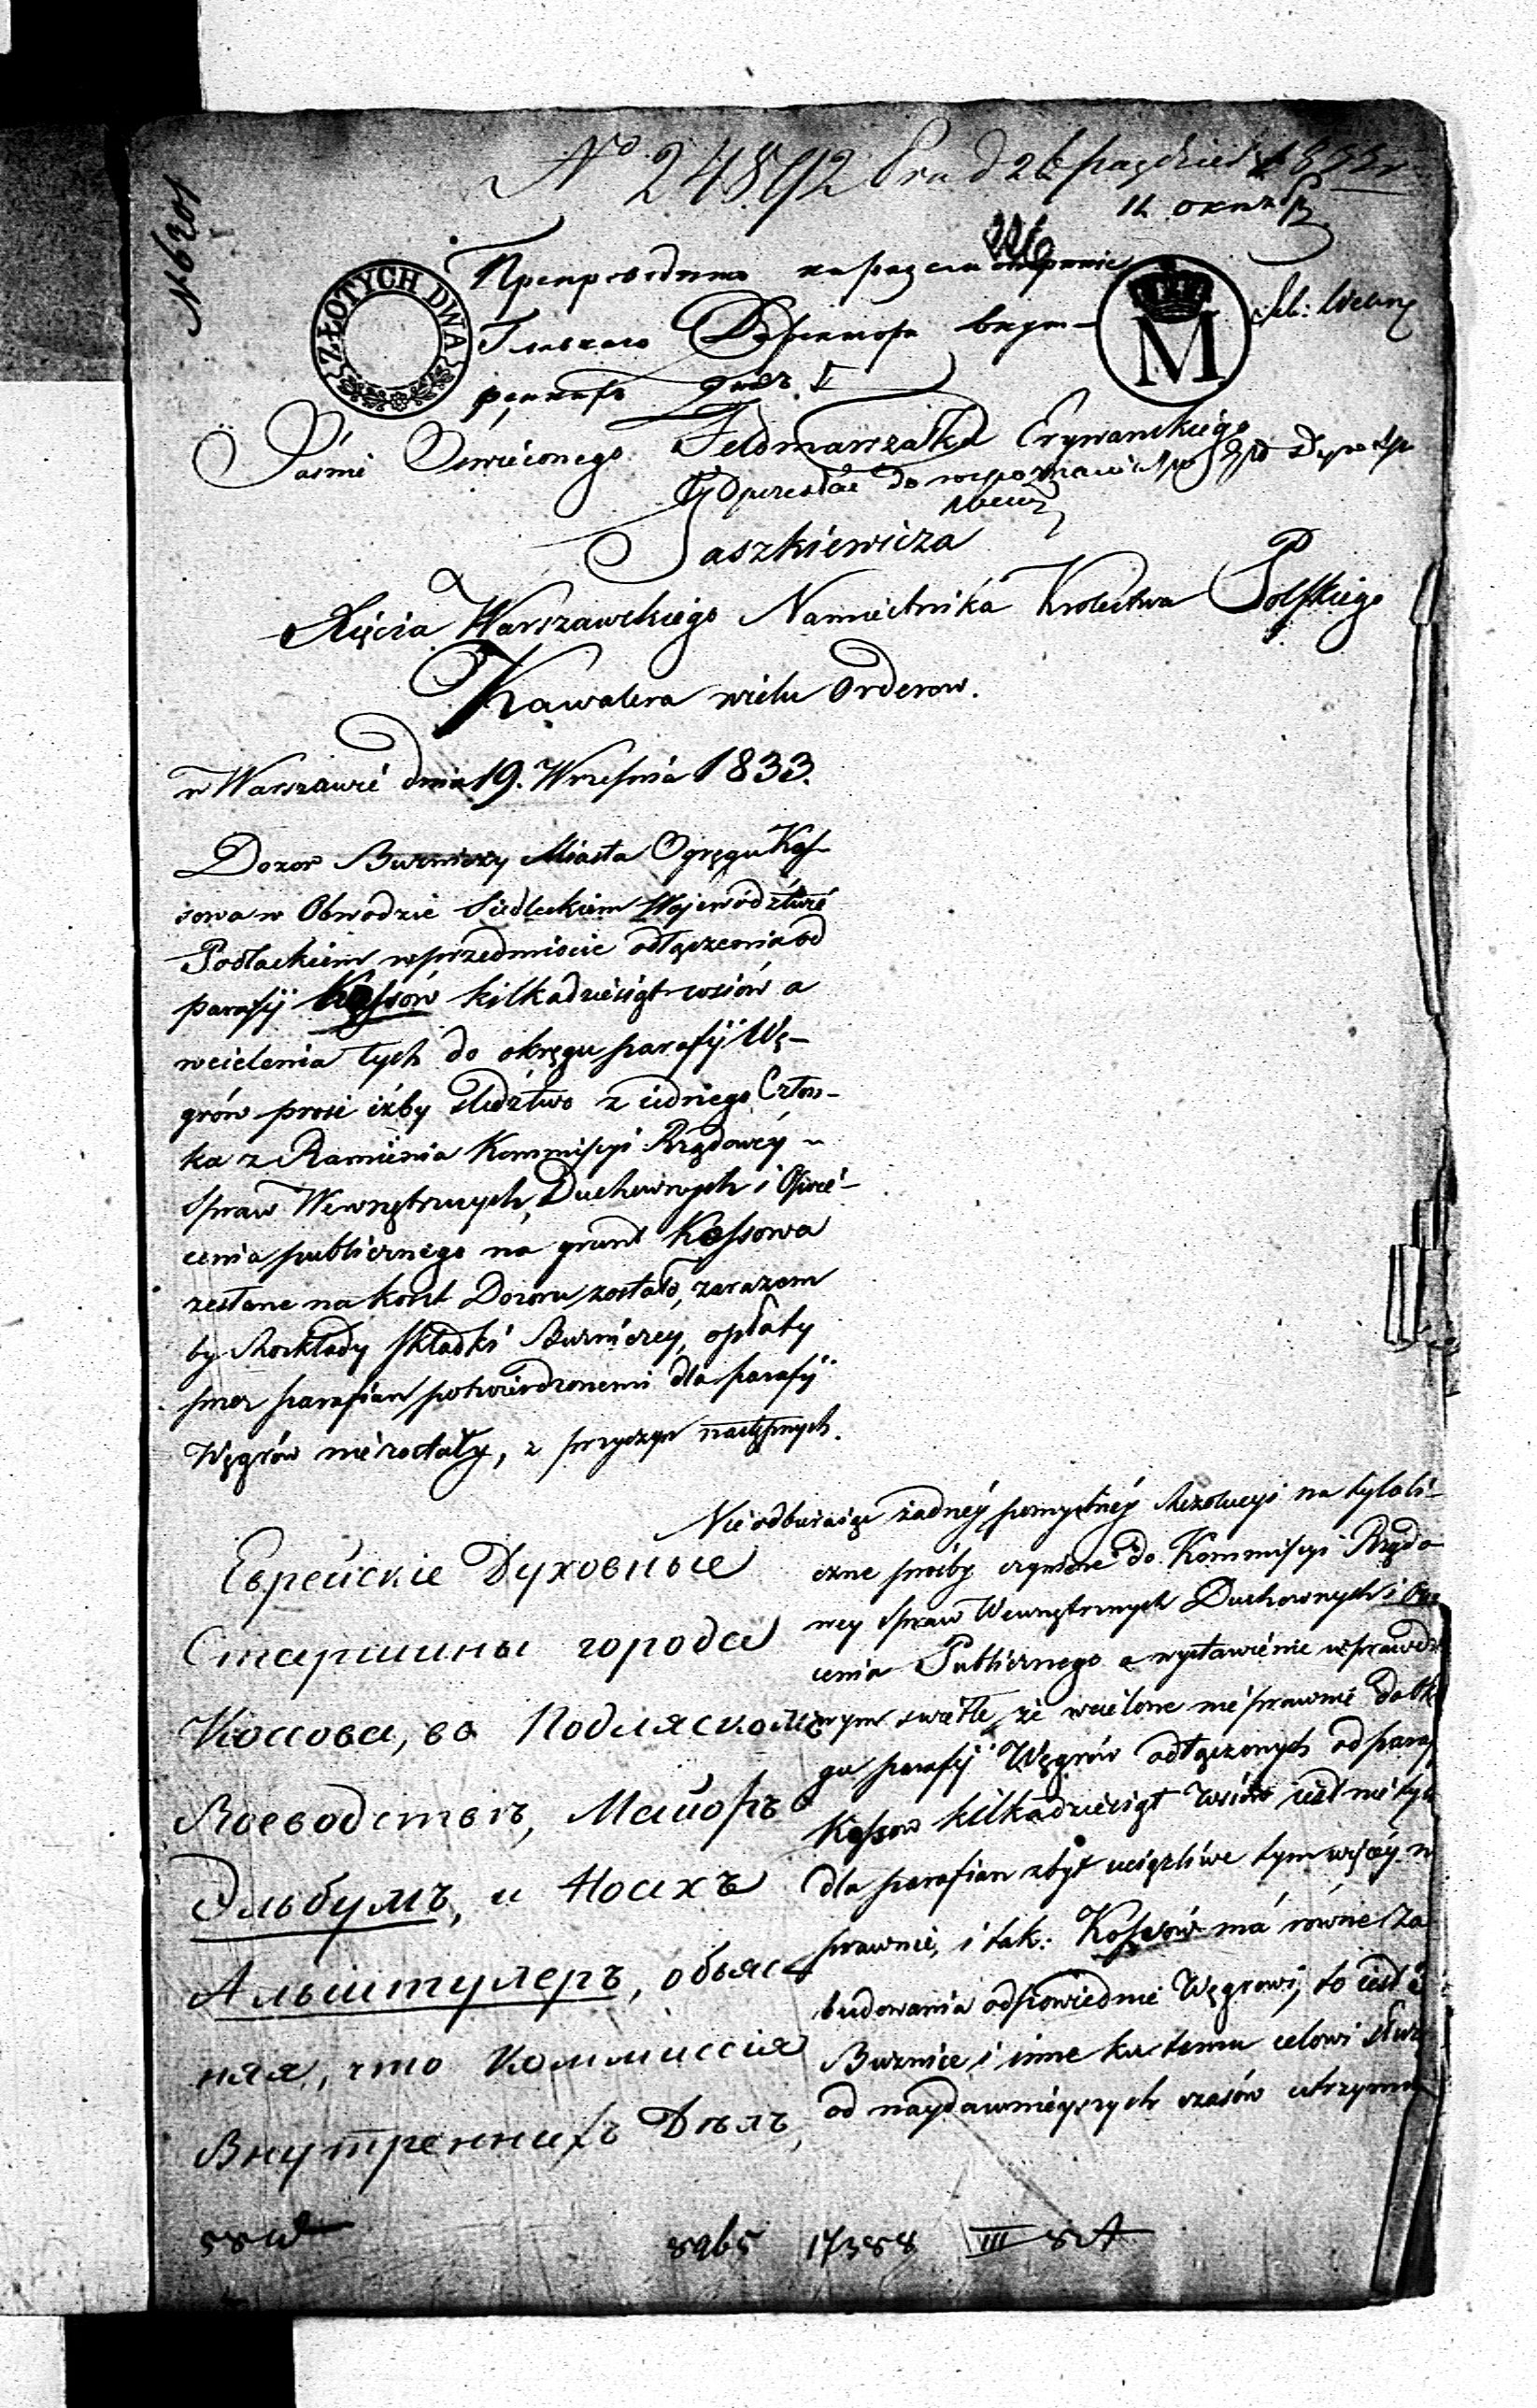 No 24892 Pr. d 26 paździer 1833 r
12 октяб
No 6301
226
ZŁOTYCH DWA
M
Препроводить на разсмотрение
Главнаго Директора внут-
Jaśnie Oświeconego Feldmarszałka Erywanskiego
Paszkiewicza
Xięcia Warszawskiego Namiestnika Krolestwa Polskiego
Kawalera wielu Orderow.
w Warszawie dnia 19. Wrzesnia 1833.
Dozor Bużniczy Miasta Ogręgu Kos-
sowa w Obwodzie Siedleckiem Wojewodztwie
Podlackiem w przedmiocie odłączenia od
parafij Kossów kilkadziesiąt wsiów a
wcielenia tych do okręgu parafij Wę-
grów prosi iżby sledztwo z iednego Człon-
ka z Ramienia Kommissyi Rządowéy
Spraw Wewnętrznych, Duchownych i Oświe-
cenia publicznego na grunt Kossowa
zesłane na koszt Dozoru zostało, zarazem
by Rozkłady Składki Bużniczey, opłaty
przez parafian potwierdzonemi dla parafij
Węgrów nie zostały, z przyczyn następnych.
Nie odbieraiąc żadnéy pomyślnéy Rezolucyi na tyloli-
czne prośby czynione do Kommissyi Rządo-
wey Spraw Wewnętrznych Duchownych i
cenia Publicznego a wystawienie w prawdzi
wym świetle, że wcielone nieprawnie do
gu parafij Węgrów odłączonych od paraf
Kossow kilkadziesiąt wsiów iest nie tyl
dla parafian zbyt uciążliwe tym więcéy n
prawnie, i tak: Kossów má równie Za
budowania odpowiednie Węgrowi, to iest
Bużnice i inne ku temu celowi służ
od naydawnieyszych czasów utrzym
Еврейскіе Духовные
Старшины города
Коссова, въ Подляскомъ
Воеводствѣ, Майоръ
Эльбумъ, и Носихъ
Альштулеръ, объяс-
няя, что Коммиссія
Внутреннихъ Дѣлъ,
8965 17388 III 8A